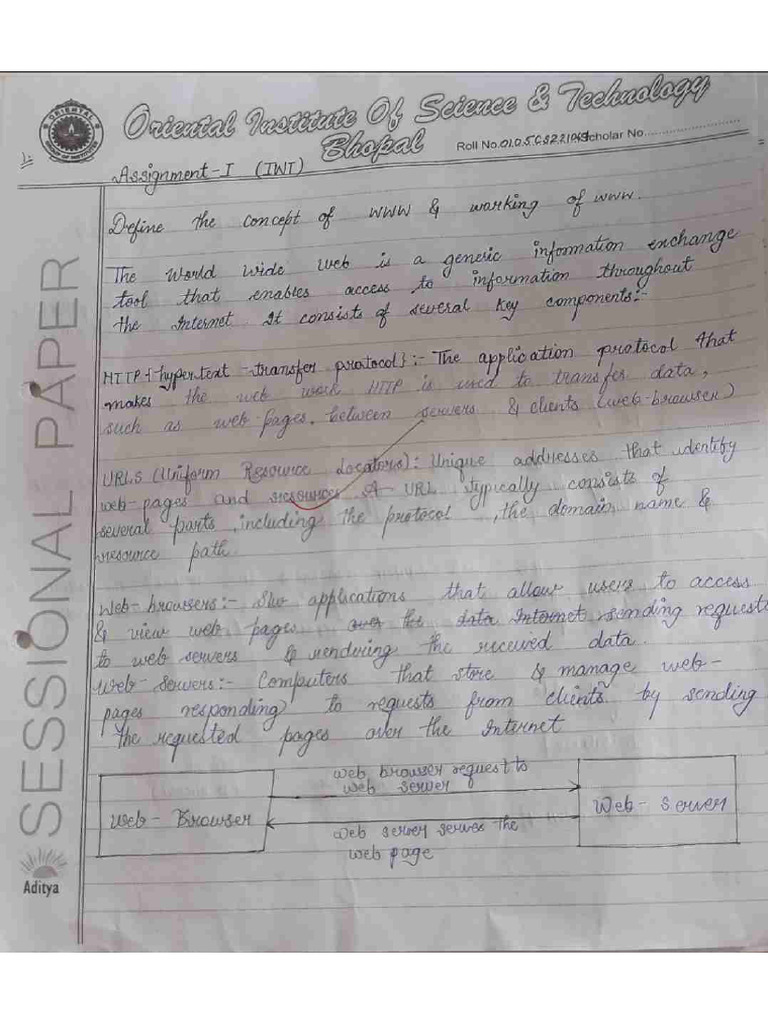 Oriental Institute Of Science & Technology
Bhopal
ORIENTAL
GROUP OF INSTITUTES
Roll No. Scholar No.
1:
Assignment-I (IWT)
Define the concept of WWW & working of www.
The World Wide Web is a generic information exchange
tool that enables access to information throughout
the Internet It consists of several key components:-
HTTP {hypertext -transfer protocol}:- The application protocol that
makes the web work HTTP is used to transfer data,
such as web-pages, between servers & clients (web-browser)
URLS (Uniform Resource Locators): Unique addresses that identify
web-pages and resources A URL typically consists of
several parts, including the protocol, the domain name &
resource path
Web-browsers:- applications that allow users to access
& view web pages over the data Internet sending requests
to web servers & rendering the received data.
Web-Servers:- Computers that store & manage web-
pages responding to requests from clients by sending
the requested pages over the Internet
web browser request to
web server
Web-Browser
Web-Server
web server serves the
web page
SESSIONAL PAPER
Aditya